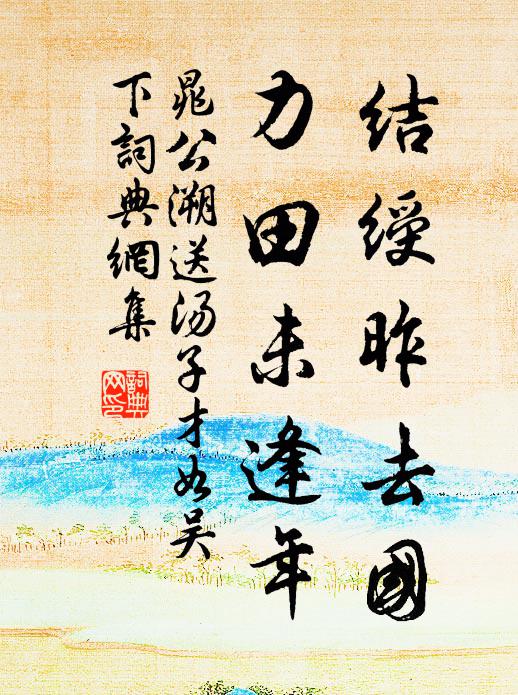 結綬昨去國
力田未逢年
晁公溯送汤子才如吴
下詞典網集
詞典
网印